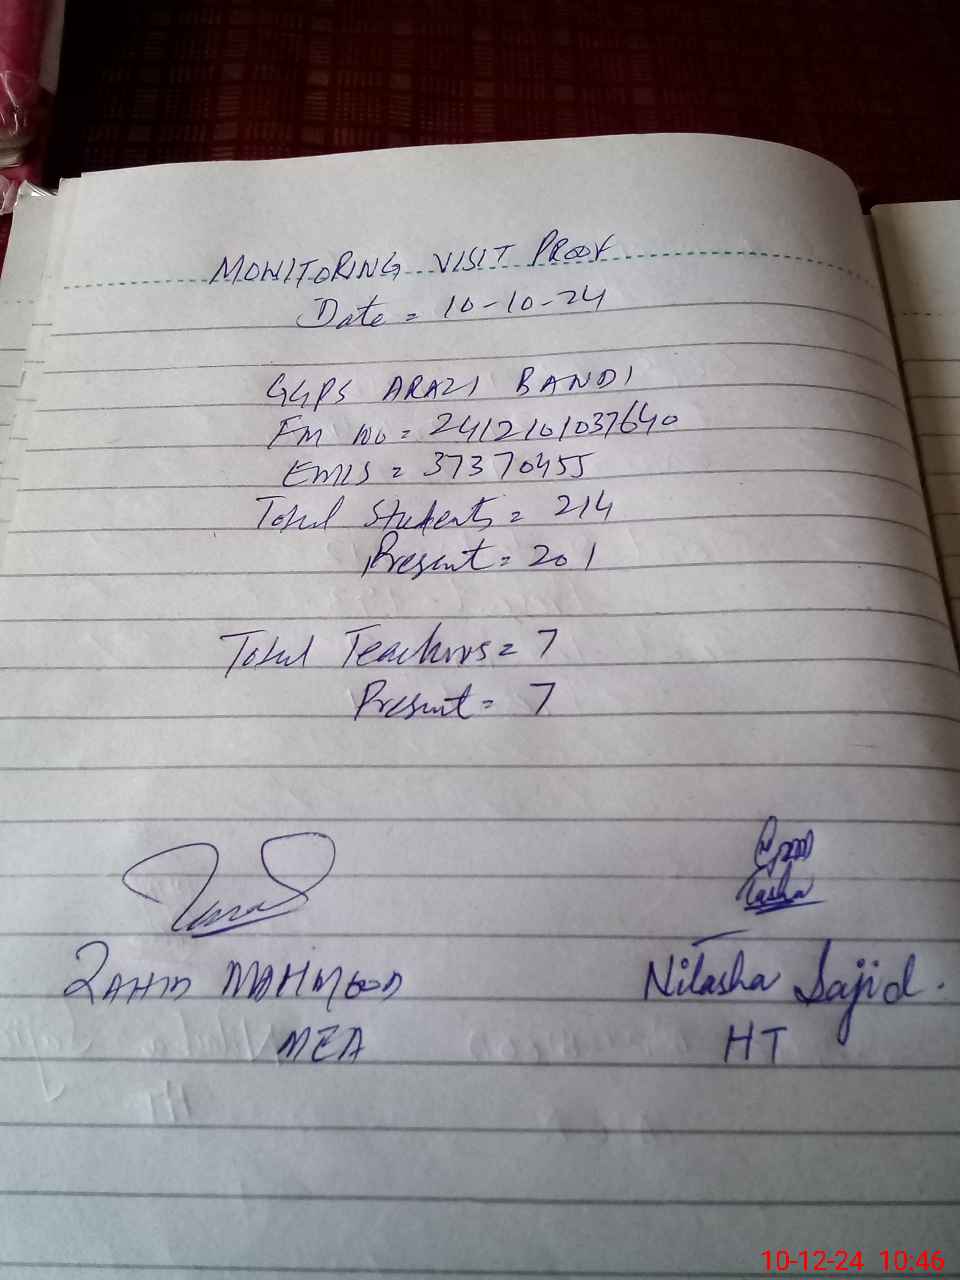 MONITORING VISIT PROOF
Date = 10-10-24
GGPS ARAZI BANDI
Fm no = 2412101037640
EMIS = 37370455
Total Students = 214
Present = 201
Total Teachers = 7
Present = 7
ZAHID MAHMOOD
Nilasha Sajid.
MEA
HT
10-12-24 10:46